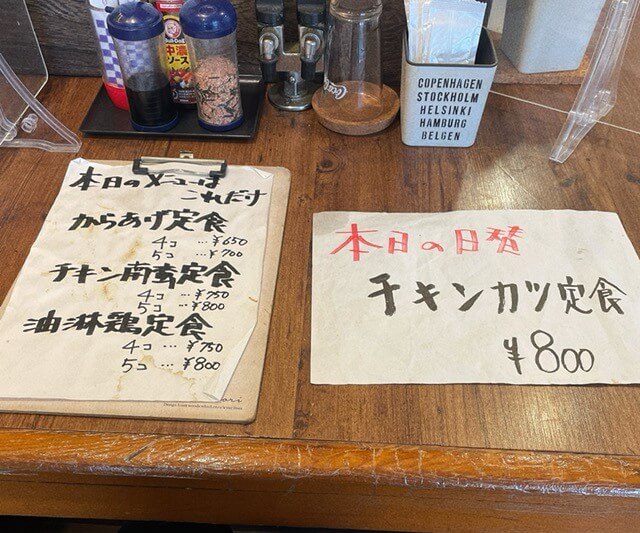 本日のメニューは
これだけ
からあげ定食
4コ …¥650
5コ …¥700
チキン南蛮定食
4コ …¥750
5コ …¥800
油淋鶏定食
4コ …¥750
5コ …¥800
本日の日替
チキンカツ定食
¥800
COPENHAGEN
STOCKHOLM
HELSINKI
HAMBURG
BELGEN
中濃
ソース